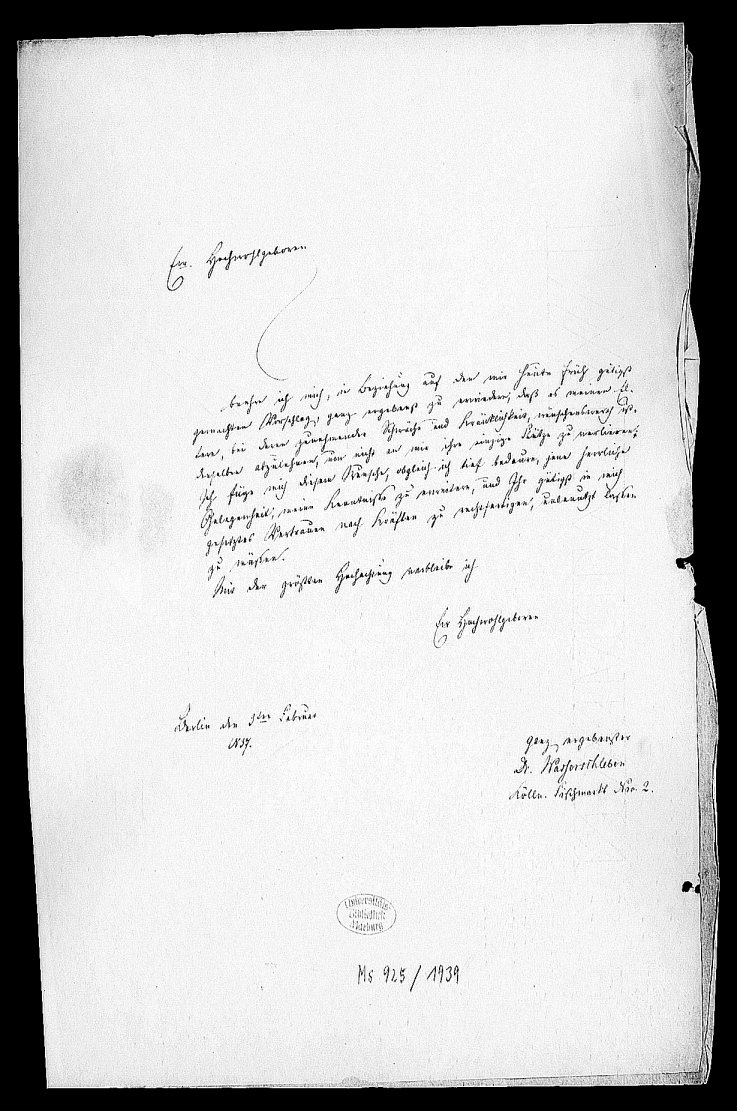 Ew. Hochwohlgeboren
beehre ich mich, in Beziehung auf den mir heute früh gütigst
gemachten Vorschlag, ganz ergebenst zu erwiedern, daß es meinen El-
tern, bei deren zunehmender Schwäche und Kränklichkeit, wünschenswerth ist
denselben abzulehnen, um nicht an mir ihre einzige Stütze zu verlieren.
Ich füge mich diesem Wunsche, obgleich ich tief bedaure, jene herrliche
Gelegenheit, meine Kenntnisse zu erweitern, und Ihr gütigst in mich
gesetztes Vertrauen nach Kräften zu rechtfertigen, unbenutzt lassen
zu müssen.
Mit der größten Hochachtung verbleibe ich
Ew Hochwohlgeboren
Berlin den 9ten Februar
1837.
ganz ergebenster
Dr. Wasserschleben
Kölln. Fischmarkt Nro. 2.
Universitäts
Bibliothek
Marburg
Ms 925 / 1939